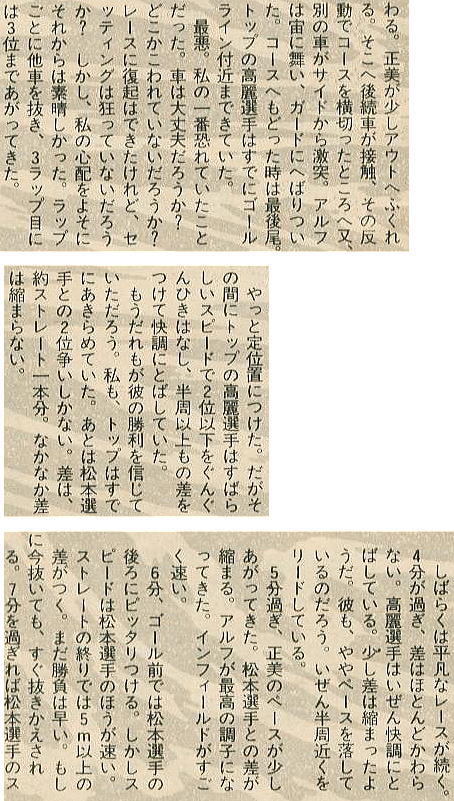 わる。正美が少しアウトへふくれ
る。そこへ後続車が接触、その反
動でコースを横切ったところへ又、
別の車がサイドから激突。アルフ
は宙に舞い、ガードにへばりつい
た。コースへもどった時は最後尾。
トップの高麗選手はすでにゴール
ライン付近まできていた。
最悪。私の一番恐れていたこと
だった。車は大丈夫だろうか？
どこかこわれていないだろうか？
レースに復起はできたけれど、セ
ッティングは狂っていないだろう
か？　しかし、私の心配をよそに
それからは素晴しかった。ラップ
ごとに他車を抜き、3ラップ目に
は3位まであがってきた。
やっと定位置につけた。だがそ
の間にトップの高麗選手はすばら
しいスピードで2位以下をぐんぐ
んひきはなし、半周以上もの差を
つけて快調にとばしていた。
もうだれもが彼の勝利を信じて
いただろう。私も、トップはすで
にあきらめていた。あとは松本選
手との2位争いしかない。差は、
約ストレート一本分。なかなか差
は縮まらない。
しばらくは平凡なレースが続く。
4分が過ぎ、差はほとんどかわら
ない。高麗選手はいぜん快調にと
ばしている。少し差は縮まったよ
うだ。彼も、ややペースを落して
いるのだろう。いぜん半周近くを
リードしている。
5分過ぎ、正美のペースが少し
あがってきた。松本選手との差が
縮まる。アルフが最高の調子にな
ってきた。インフィールドがすご
く速い。
6分、ゴール前では松本選手の
後ろにピッタリつける。しかしス
ピードは松本選手のほうが速い。
ストレートの終りでは5m以上の
差がつく。まだ勝負は早い。もし
に今抜いても、すぐ抜きかえされ
る。7分を過ぎれば松本選手のス